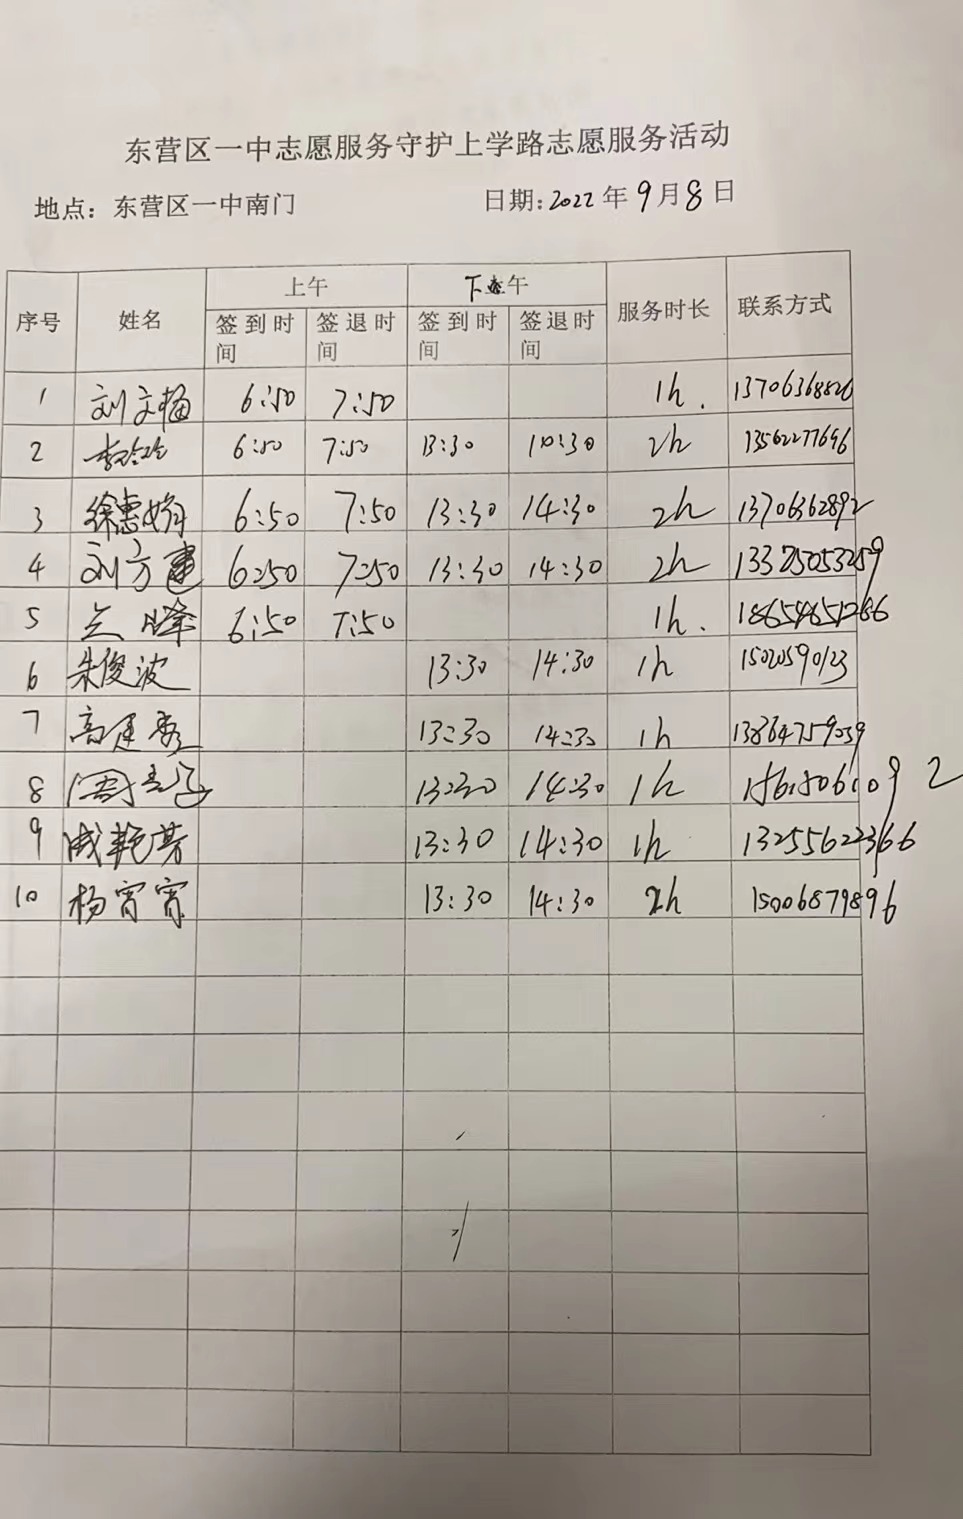 东营区一中志愿服务守护上学路志愿服务活动
地点：东营区一中南门 日期：2022年9月8日
序号 姓名 上午 下午 服务时长 联系方式
签到时间 签退时间 签到时间 签退时间
1 刘文梅 6:50 7:50 1h. 13706368826
2 6:50 7:50 13:30 10:30 2h 13562277696
3 徐惠娟 6:50 7:50 13:30 14:30 2h 13706362892
4 刘方建 6:50 7:50 13:30 14:30 2h 13325053259
5 兰峰 6:50 7:50 1h. 18654651266
6 朱俊波 13:30 14:30 1h 15020590123
7 高建秀 13:30 14:30 1h 13864759059
8 13:30 14:30 1h
9 成艳芬 13:30 14:30 1h 13255622366
10 杨宵宵 13:30 14:30 2h 15006879896